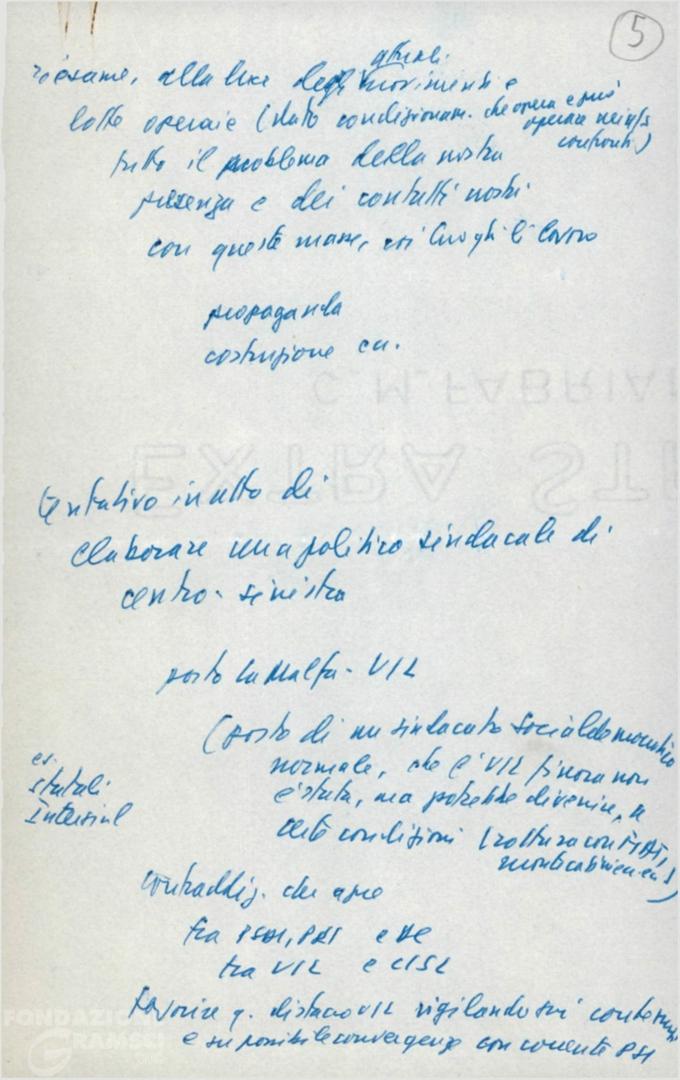 5
riesame, alla luce degli attuali movimenti e
lotte operaie (dato condizionam. che opera e può operare nei ns confronti)
tutto il problema della nostra
presenza e dei contatti nostri
con queste masse, coi luoghi di lavoro
propaganda
costruzione ecc.
C. M. FABRIAN
EXTRA ST
tentativo in atto di
elaborare una politica sindacale di
centro-sinistra
posto La Malfa - UIL
(posto di un sindacato socialdemocratico
normale, che l'UIL finora non
è stata, ma potrebbe divenire, a
date condizioni (rottura con FIAT,
Montecatini ecc.)
es.
statali
Intersind
Contraddiz. che apre
fra PSDI, PRI e DC
tra UIL e CISL
Favorire q. distacco UIL vigilando sui contenuti
e su possibile convergenza con corrente PSI
FONDAZIONE
GRAMSCI